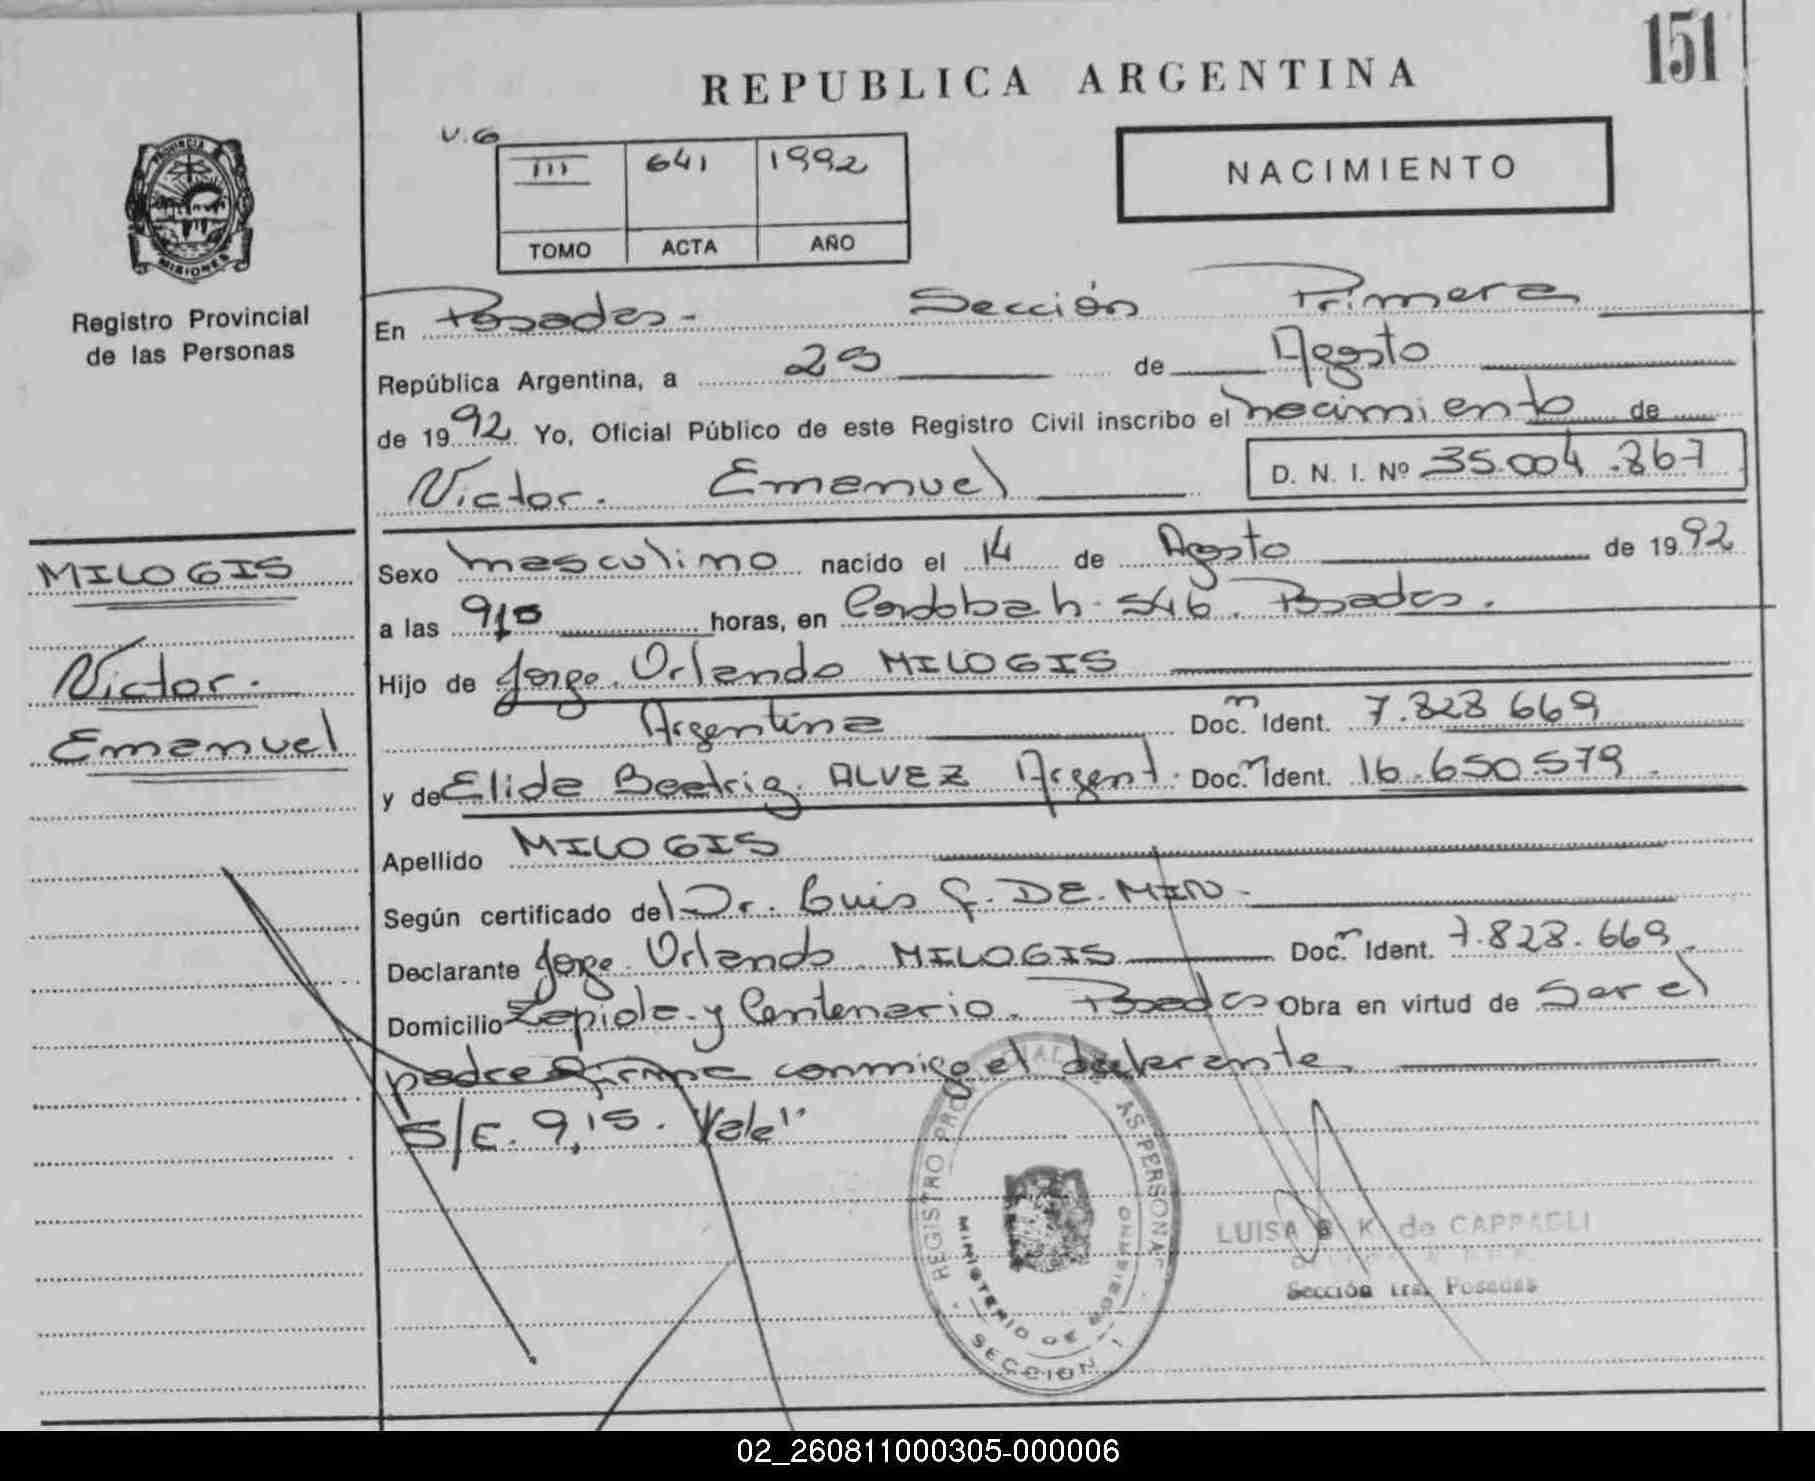 151
REPUBLICA ARGENTINA
V.G
III 641 1992
TOMO ACTA AÑO
NACIMIENTO
PROVINCIA DE
MISIONES
Registro Provincial
de las Personas
En Posadas - Sección Primera
República Argentina, a 29 de Agosto
de 1992 Yo, Oficial Público de este Registro Civil inscribo el nacimiento de
Victor. Emanuel D. N. I. Nº 35.004.867
MILOGIS
Victor.
Emanuel
Sexo masculino nacido el 14 de Agosto de 1992
a las horas, en Cordoba n. 546. Posadas.
Hijo de Jorge Orlando MILOGIS
Argentina Doc. n Ident. 7.828.669
y de Elida Beatriz ALVEZ Argent. Doc. n Ident. 16.650.579.
Apellido MILOGIS
Según certificado del Dr. Luis G. DE MIN -
Declarante Jorge Orlando MILOGIS Doc. n Ident. 7.828.669.
Domicilio Zapiola y Centenario. Posadas Obra en virtud de Ser el
padre firma conmigo el declarante.
S/E. 9,15. "Vale"
REGISTRO PROVINCIAL DE LAS PERSONAS
MINISTERIO DE GOBIERNO
SECCION 1
LUISA B. K. de CAPPAGLI
Sección 1ra. Posadas
02_260811000305-000006